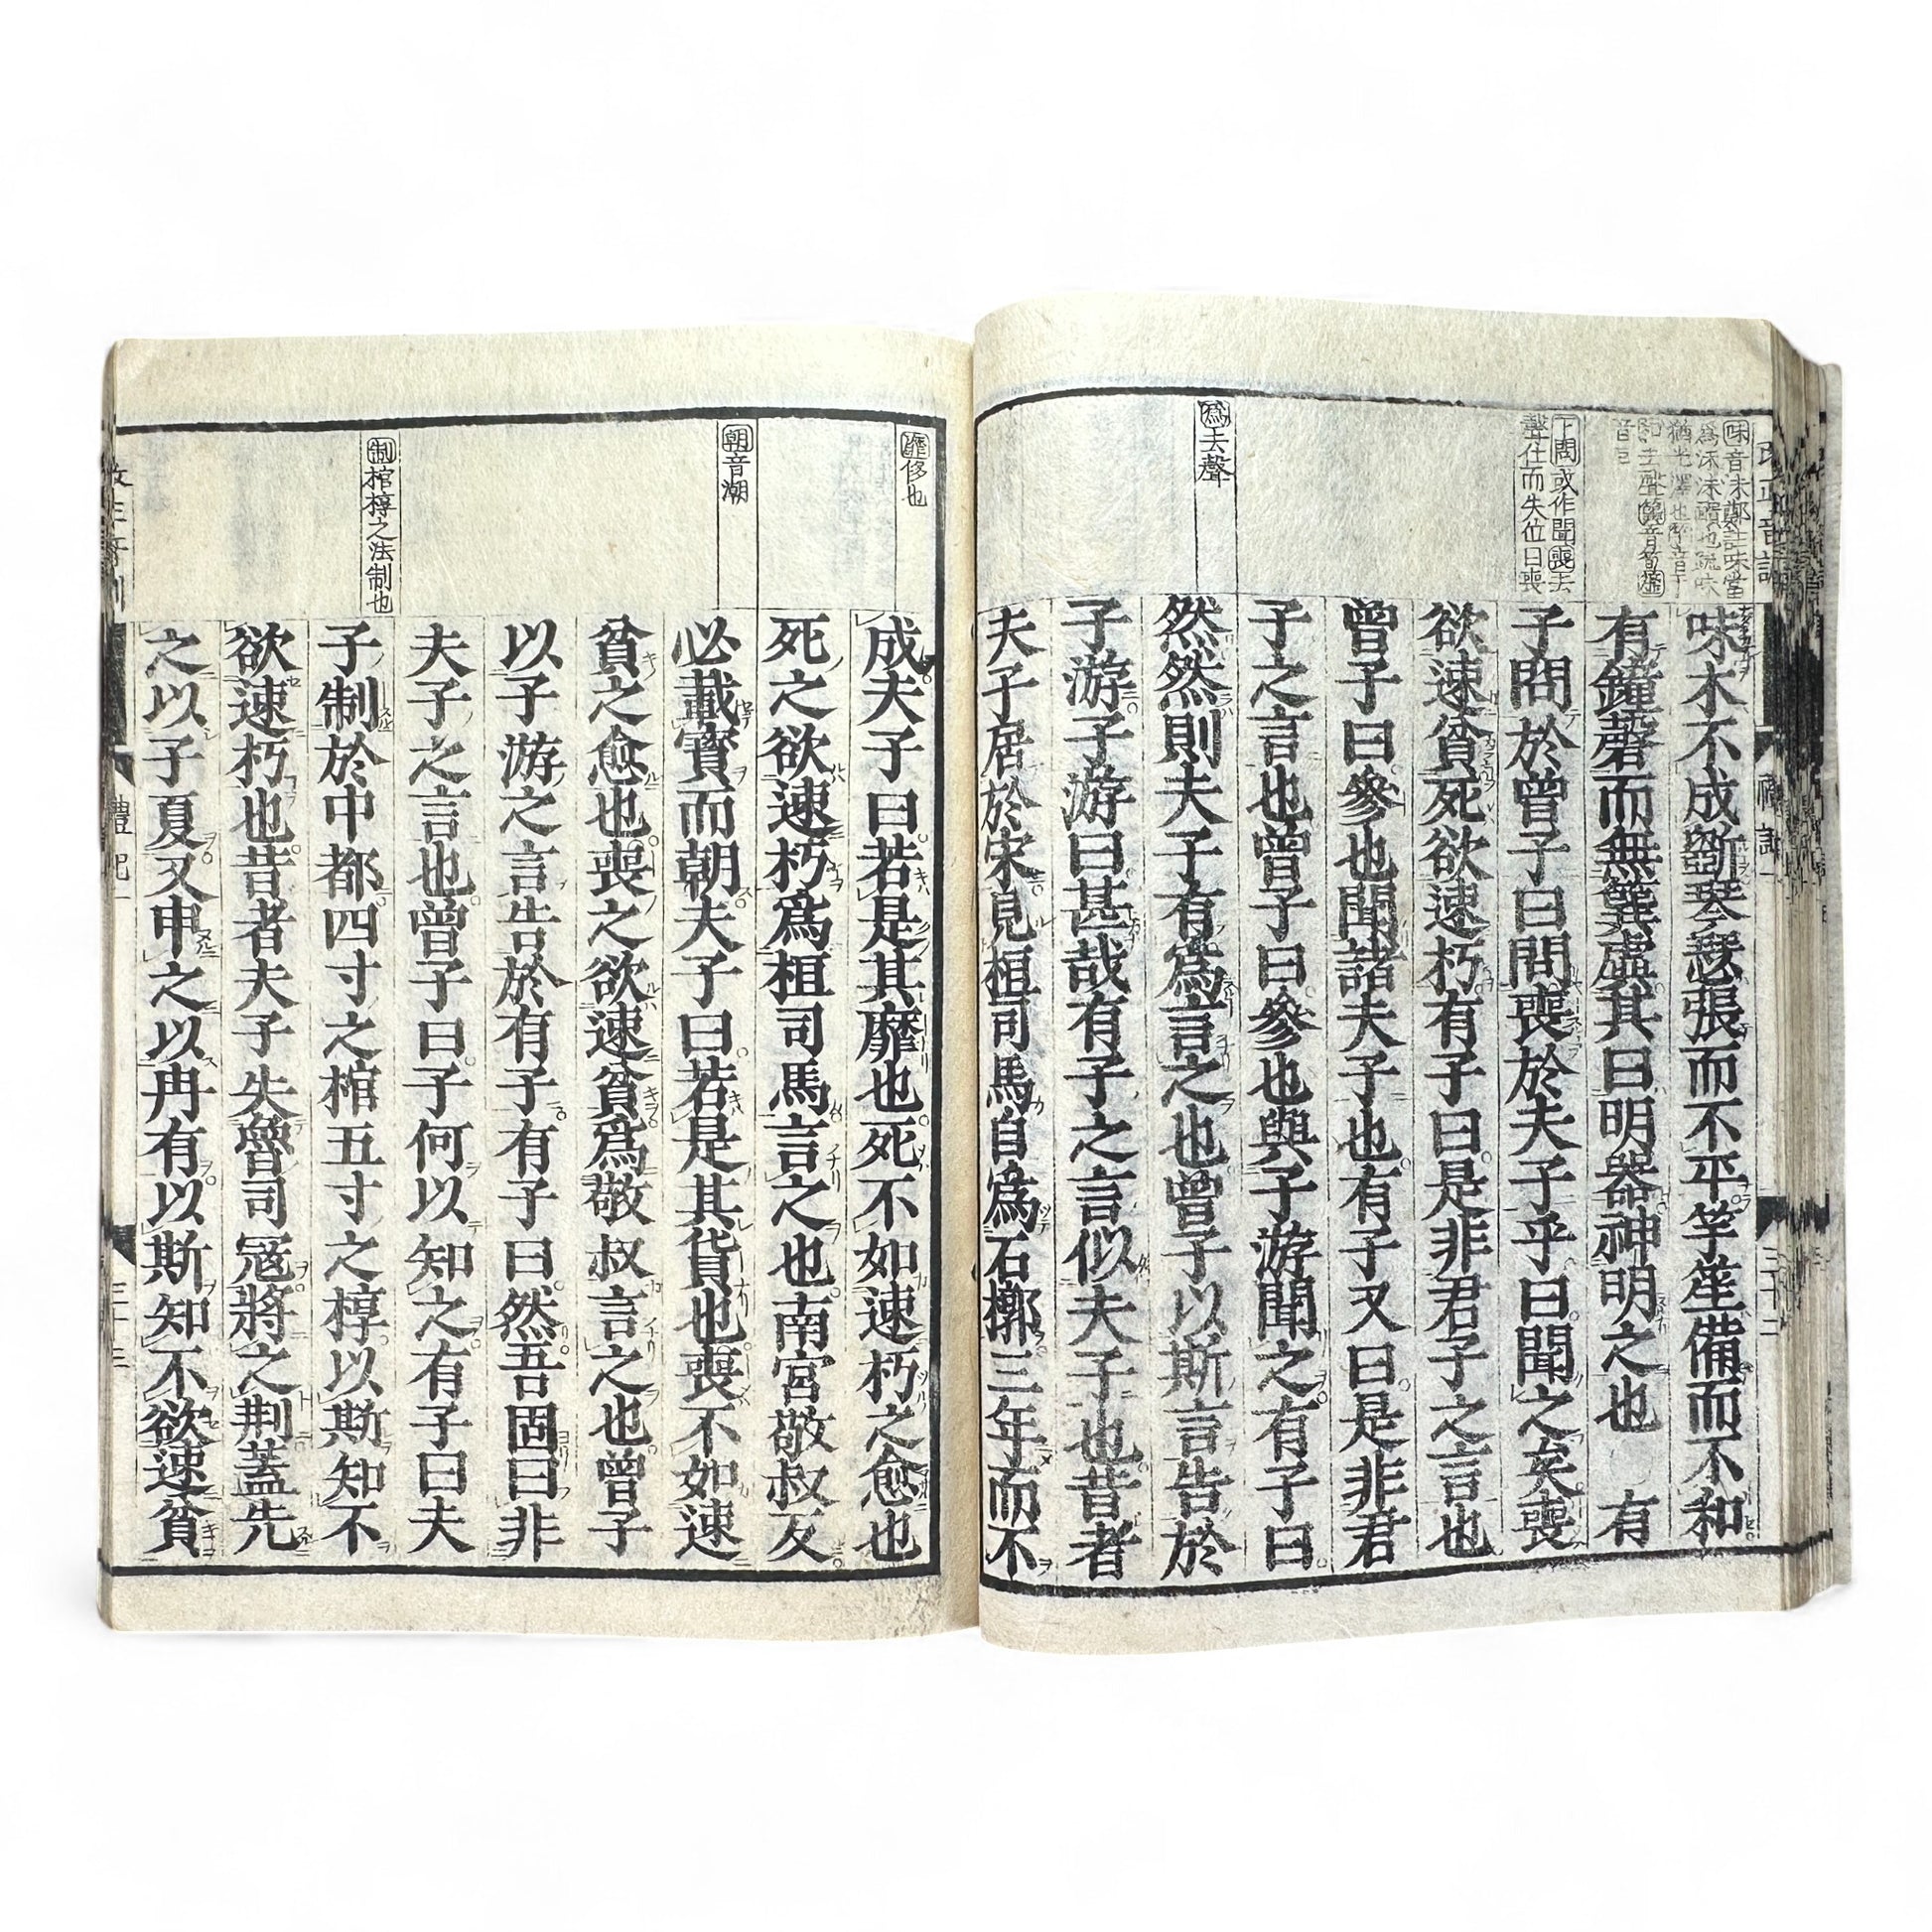 味木不成斲琴瑟張而不平竽笙備而不和
有鐘磬而無簨虡其曰明器神明之也 有
子問於曾子曰問喪於夫子乎曰聞之矣喪
欲速貧死欲速朽有子曰是非君子之言也
曾子曰參也聞諸夫子也有子又曰是非君
子之言也曾子曰參也與子游聞之有子曰
然然則夫子有爲言之也曾子以斯言告於
子游子游曰甚哉有子之言似夫子也昔者
夫子居於宋見桓司馬自爲石槨三年而不
爲去聲
下問或作聞喪去
聲仕而失位曰喪
成夫子曰若是其靡也死不如速朽之愈也
死之欲速朽爲桓司馬言之也南宮敬叔反
必載寳而朝夫子曰若是其貨也喪不如速
貧之愈也喪之欲速貧爲敬叔言之也曾子
以子游之言告於有子有子曰然吾固曰非
夫子之言也曾子曰子何以知之有子曰夫
子制於中都四寸之棺五寸之椁以斯知不
欲速朽也昔者夫子失魯司寇將之荆蓋先
之以子夏又申之以冉有以斯知不欲速貧
靡侈也
朝音潮
制棺椁之法制也
禮記一
三十三